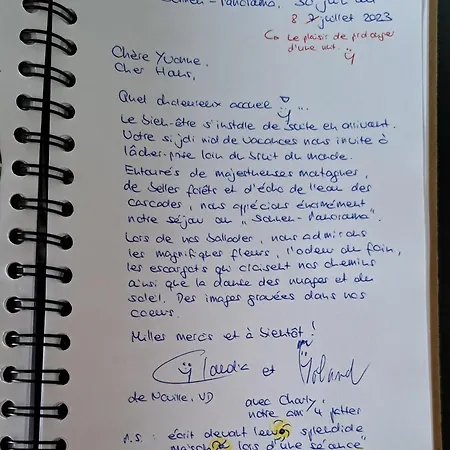 Sonnen-Panorama, 30 juin au
8 juillet 2023
Le plaisir de prolonger
d'une nuit.
Chère Yvonne,
Cher Hans,
Quel chaleureux accueil ! ...
Le bien-être s'installe de suite en arrivant.
Votre si joli nid de vacances nous invite à
lâcher-prise loin du bruit du monde.
Entourés de majestueuses montagnes,
de belles forêts et d'écho de l'eau des
cascades, nous apprécions énormément
notre séjour au "Sonnen-Panorama".
Lors de nos ballades, nous admirons
les magnifiques fleurs, l'odeur du foin,
les escargots qui croisent nos chemins
ainsi que la danse des nuages et du
soleil. Des images gravées dans nos
coeurs.
Milles mercis et à bientôt !
Claudia et Roland
de Naville, VD avec Charly,
notre ami 4 pattes
P.S. : écrit devant leur splendide
maison lors d'une séance"